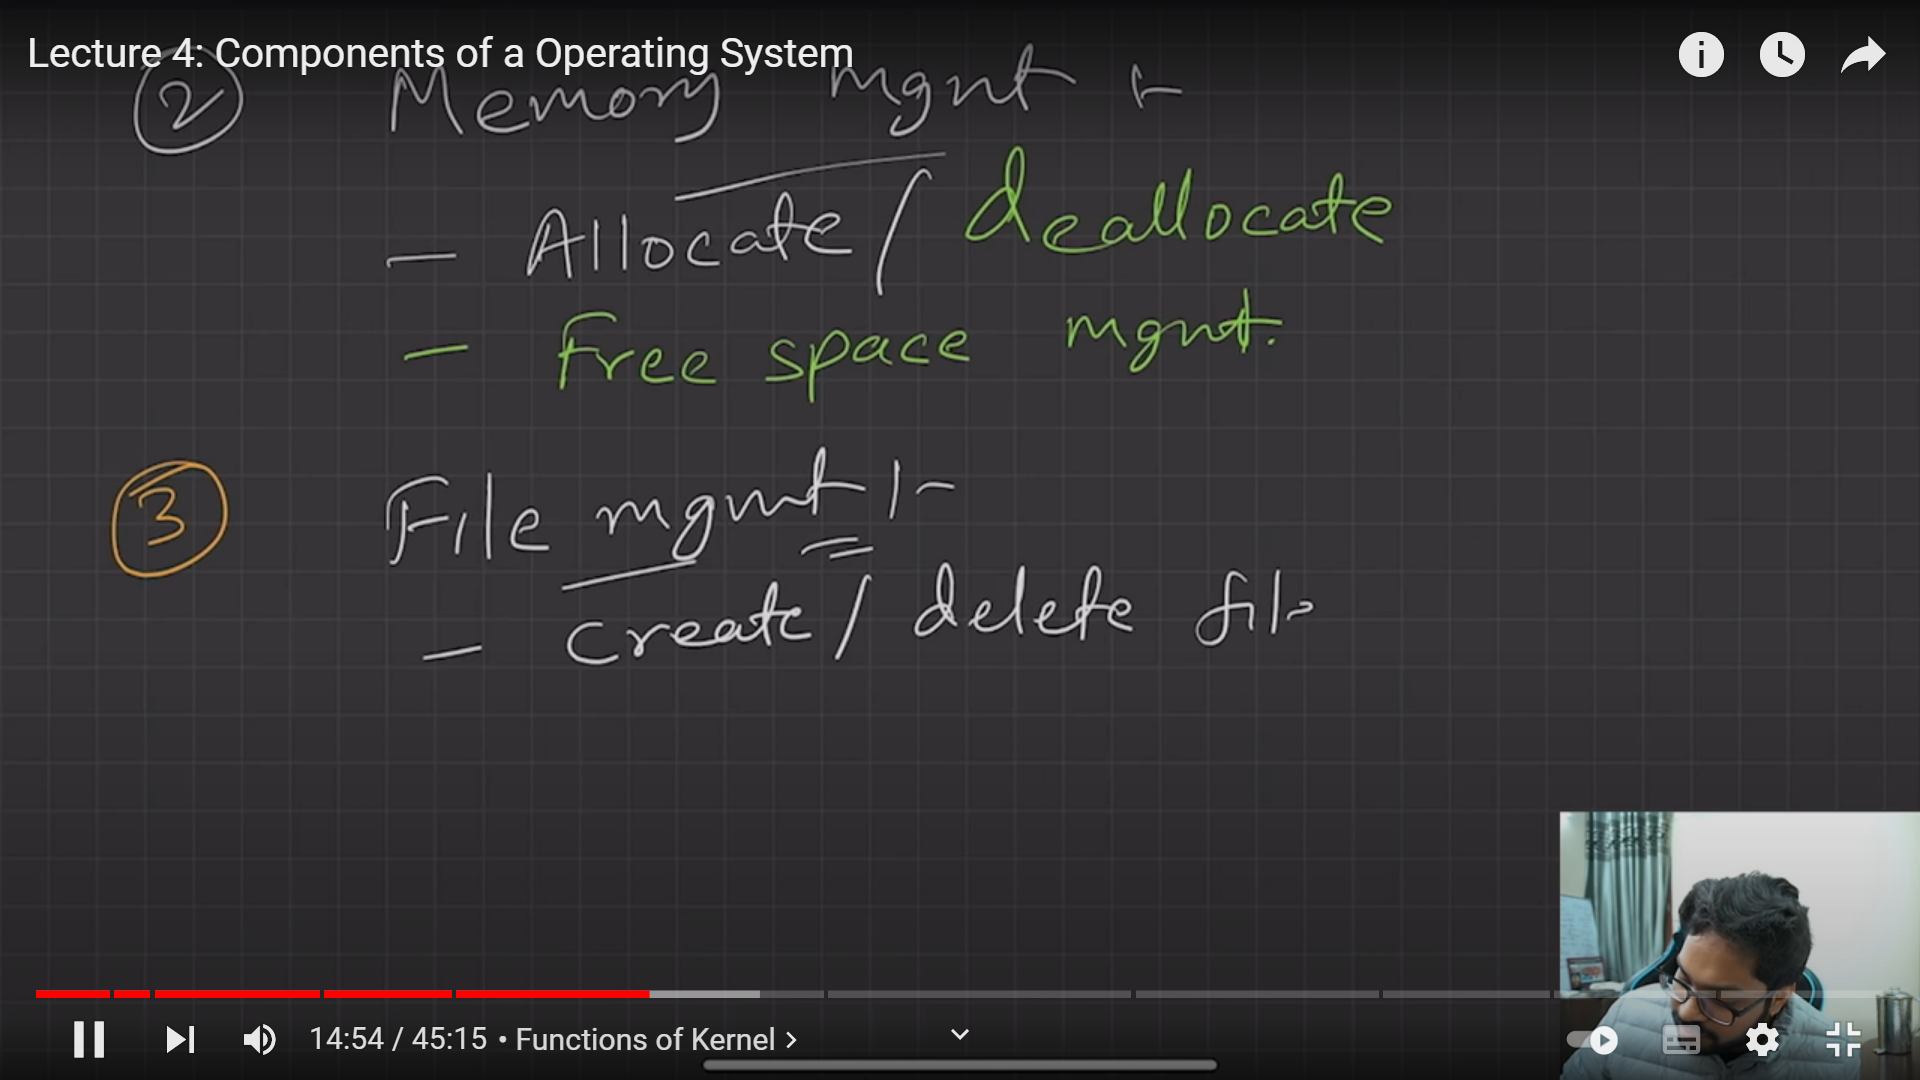 Lecture 4: Components of a Operating System
2 Memory mgnt :-
- Allocate / deallocate
- Free space mgnt.
3 File mgmt :-
- create / delete file
14:54 / 45:15 • Functions of Kernel >